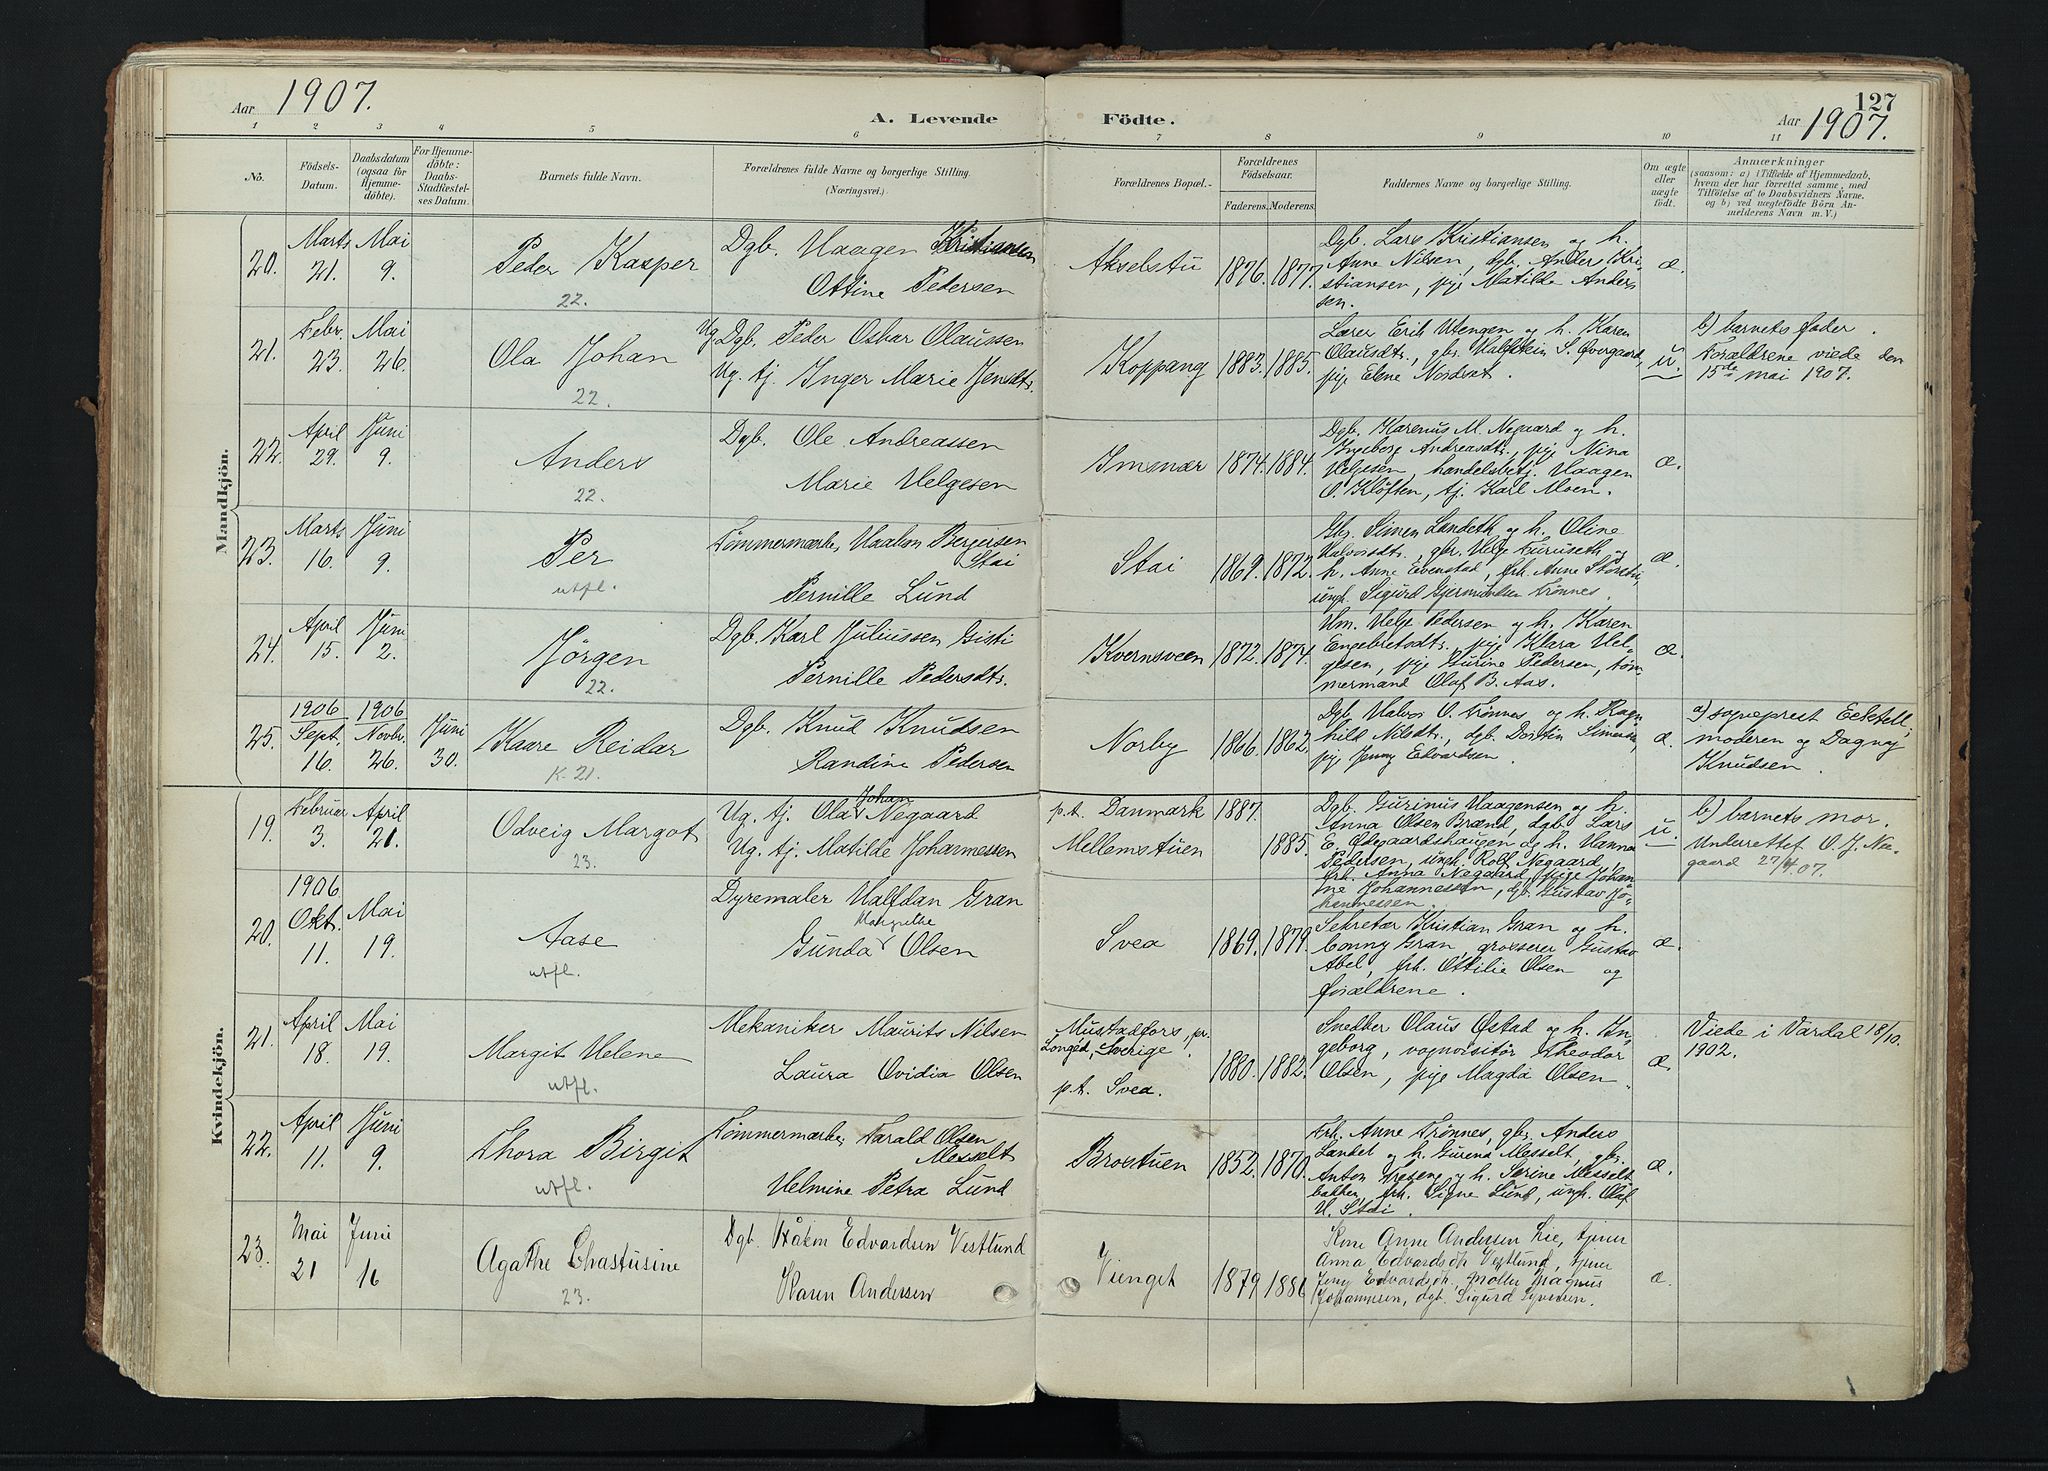 Aar 1907.
A. Levende Födte.
127
Aar 1907.
1 2 3 4 5 6 7 8 9 10 11
No.
Födsels-Datum.
Daabsdatum (ogsaa for Hjemme-döbte).
For Hjemme-döbte: Daabs-Stadfæstel-ses Datum.
Barnets fulde Navn.
Forældrenes fulde Navne og borgerlige Stilling. (Næringsvei.)
Forældrenes Bopæl.
Forældrenes Födselsaar.
Faderens. Moderens.
Faddernes Navne og borgerlige Stilling.
Om ægte eller uægte födt.
Anmærkninger
(saasom: a) i Tilfælde af Hjemmedaab,
hvem der har forrettet samme, med
Tilföielse af to Daabsvidners Navne.
og b) ved uægtefödte Börn An-
melderens Navn m. V.)
Mandkjön.
20. Marts 21. Mai 9.
Peder Kasper
22.
Dgb. Haagen Kristiansen
Ottine Pedersen
Akselstu 1876. 1877.
Dgb. Lars Kristiansen og h.
Anne Nilsen, dgb. Anders Kri-
stiansen, pige Matilde Anders
sen.
æ.
21. Febr. 23. Mai 26.
Ola Johan
22.
Ug. Dgb. Peder Oskar Olaussen
Ug. tj. Inger Marie Jensdtr.
Koppang 1883. 1885.
Lærer Erik Utengen og h. Karen
Olausdtr., gbr. Halfstein S. Øvergaard,
pige Elene Nordset.
u.
b) barnets fader.
Forældrene viede den
15de mai 1907.
22. April 29. Juni 9.
Anders
22.
Dgb. Ole Andreassen
Marie Helgesen
Immær 1874. 1884.
Dgb. Karenus M. Negaard og h.
Ingeborg Andreasdtr., pige Nina
Helgesen, handelsbetj. Haagen
O. Kløften, tj. Karl Moen.
æ.
23. Marts 16. Juni 9.
Per
utfl.
Tømmermærker Haakon Bergersen
Stai
Pernille Lund
Stai 1869. 1872.
Gbr. Simen Landeth og h. Oline
Halvorsdtr., gbr. Helge Furuseth og
h. Anne Evenstad, frk. Anne Storstu,
ungk. Sigurd Gjermundsen Trønnes.
æ.
24. April 15. Juni 2.
Jørgen
22.
Dgb. Karl Juliussen Gisti
Pernille Pedersdtr.
Kvernsveen 1872. 1874.
Hm. Helge Pedersen og h. Karen
Engebretsdtr., pige Klara Hel-
gesen, pige Gurine Pedersen, tøm
mermand Olaf B. Aas.
æ.
25. 1906 Sept. 16. 1906 Novbr. 26. Juni 30.
Kaare Reidar
K. 21.
Dgb. Knud Knudsen
Randine Pedersen
Norby 1866. 1862.
Dgb. Halvor O. Trønnes og h. Ragn
hild Nilsdtr., dgb. Simensen,
pige Jenny Edvardsen.
æ.
a) sogneprest Eckell;
moderen og Dagny
Knudsen.
Kvindekjön.
19. Februar 3. April 21.
Odveig Margot
23.
Ug. tj. Ola Johan Negaard
Ug. tj. Matilde Johannessen
p.t. Danmark 1887.
Mellemstuen 1885.
Dgb. Gurinus Haagensen og h.
Anna Olsen Brænd, dgb. Lars
E. Ødegaardshaugen og h. Hanna
Pedersen, ungk. Rolf Negaard,
frk. Anna Negaard, pige Johan
ne Johannessen, dgb. Gustav Jo-
hannessen.
u.
b) barnets mor.
Underrettet O. J. Ne-
gaard 27/4 07.
20. 1906 Okt. 11. Mai 19.
Aase
utfl.
Dyremaler Halfdan Gran
Gunda Margrethe Olsen
Svea 1869. 1879.
Sekretær Kristian Gran og h.
Conny Gran, grosserer Gustav
Abel, frk. Ottilie Olsen og
forældrene.
æ.
21. April 18. Mai 19.
Margit Helene
utfl.
Mekaniker Maurits Nilsen
Laura Ovidia Olsen
Mustadfors, pr.
Longed, Sverige.
p.t. Svea.
1880. 1882.
Snedker Olaus Østad og h. In
geborg, vognvisitør Theodor
Olsen, pige Magda Olsen.
æ.
Viede i Vardal 18/10.
1902.
22. April 11. Juni 9.
Thora Birgit
utfl.
Tømmermærker Harald Olsen
Messelt
Helmine Petra Lund
Brostuen 1852. 1870.
Frk. Anne Trønnes, gbr. Anders
Landet og h. Gurena Messelt, gbr.
Anton Tregeng og h. Serine Messelt
bakken, frk. Signe Lund, ungk. Olaf
H. Stai.
æ.
23. Mai 21 Juni 16
Agathe Chastusine
23.
Dgb. Håken Edvardsen Vestlund
Karen Andersen
Vienget 1879 1886
Kone Anne Andersen Lie, tjener
Anna Edvardsdtr. Vestlund, tjener
Jeny Edvardsdtr., Magnus
Johannesen, dgb. Sigurd Syversen.
æ.